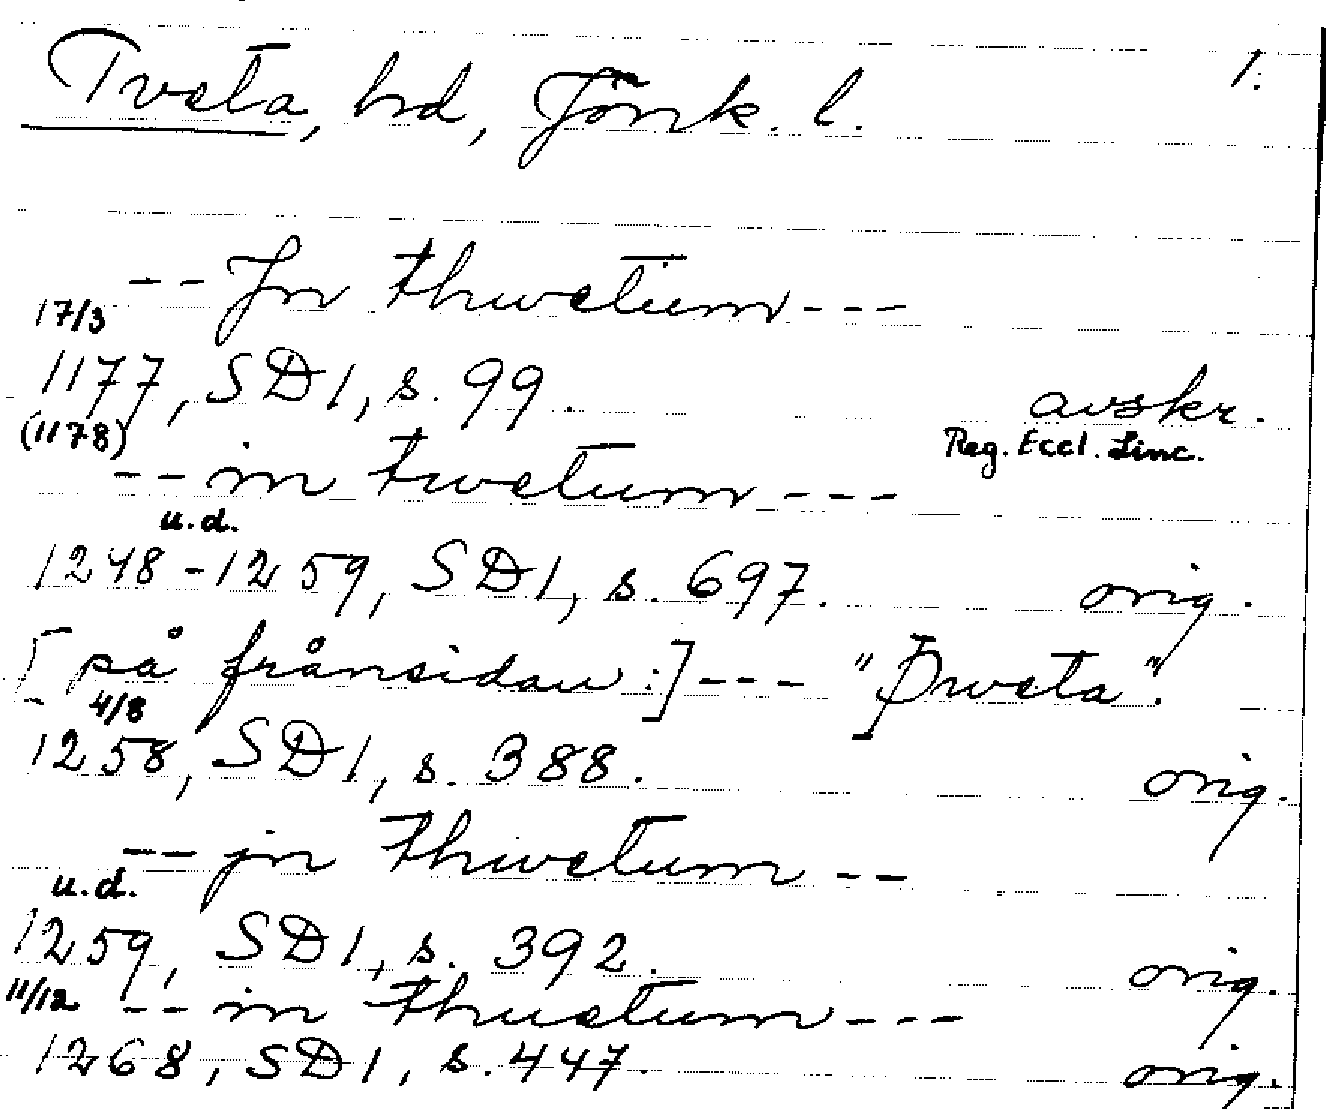 Tveta, hd, Jönk. l. 1.
-- Jn thwetum ---
17/3
1177, SD1, s. 99. avskr.
(1178) Reg. Eccl. Linc.
-- in twetum ---
u.d.
1248-1259, SD1, s. 697. orig.
[på frånsidan:] --- "Þweta".
4/8
1258, SD1, s. 388. orig.
-- jn thwetum --
u.d.
1259, SD1, s. 392. orig.
11/12 -- in thuetum ---
1268, SD1, s. 447. orig.